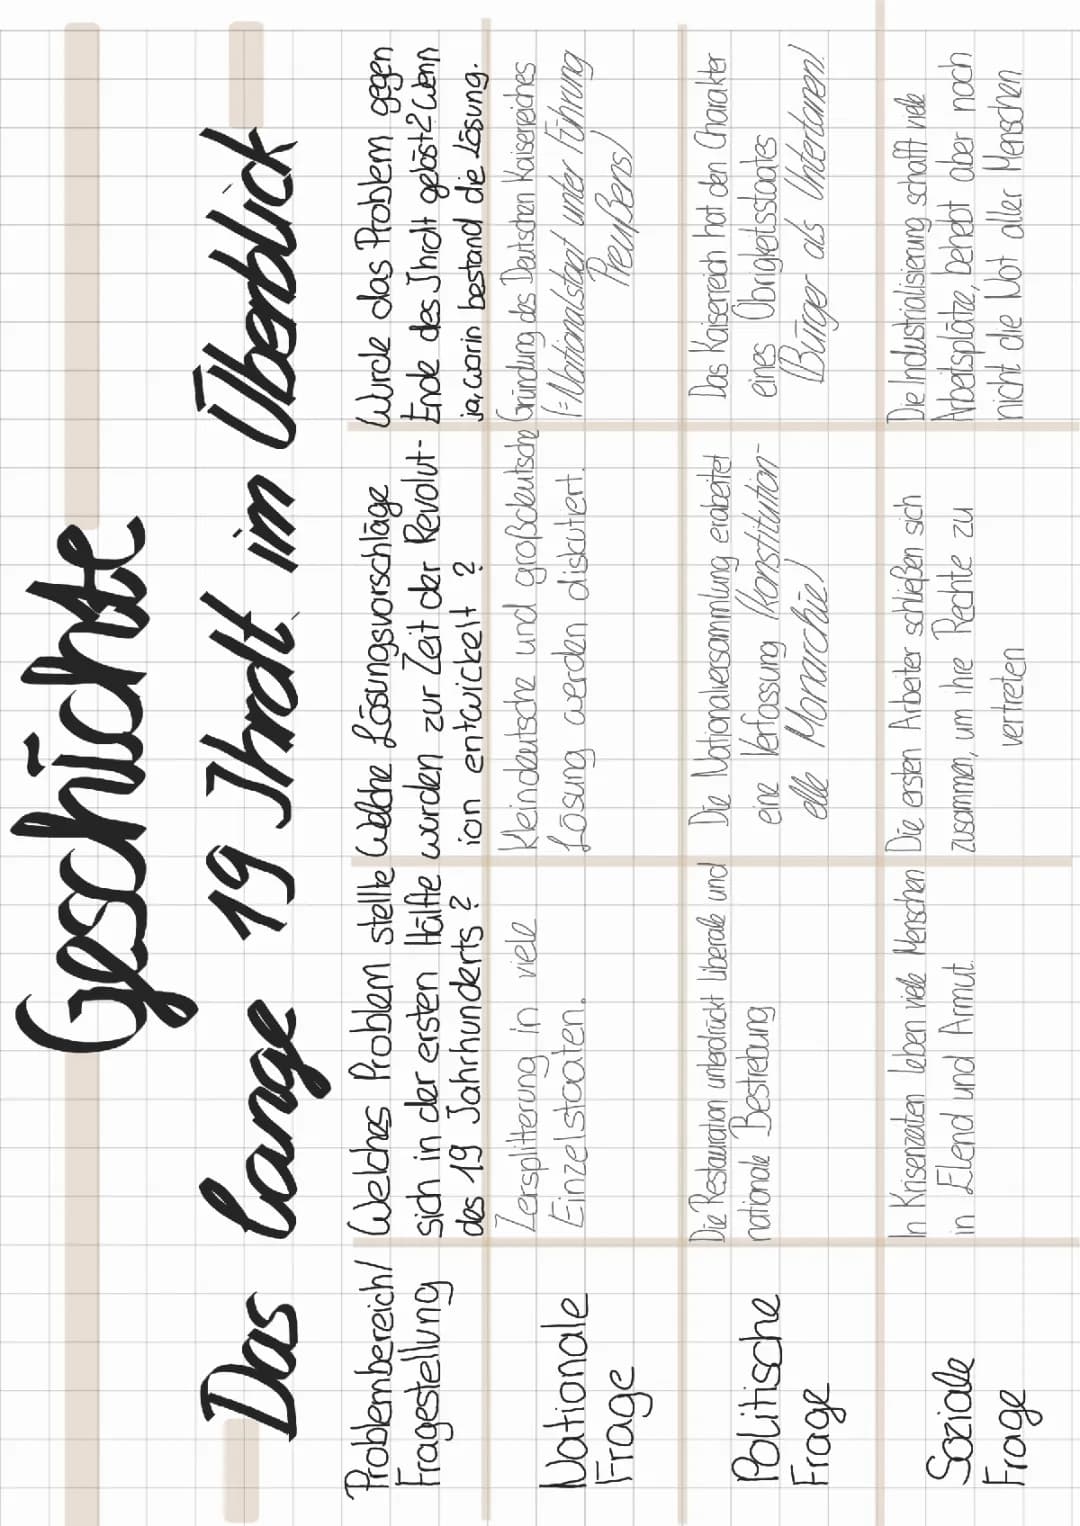 Geschichte
Das lange 19 Jhrdt im Überblick
Problembereich/
Fragestellung
Welches Problem stellte
sich in der ersten Hälfte
des 19 Jahrhunderts?
Welche Lösungsvorschläge
wurden zur Zeit der Revolut-
ion entwickelt?
Wurde das Problem gegen
Ende des Jhrdt gelöst? Wenn
ja, worin bestand die Lösung.
Nationale
Frage
Zersplitterung in viele
Einzelstaaten.
Kleindeutsche und großdeutsche
Lösung werden diskutiert.
Gründung des Deutschen Kaiserreiches
(=Nationalstaat unter Führung
Preußens)
Politische
Frage
Die Restauration unterdrückt liberale und
nationale Bestrebung
Die Nationalversammlung erabeitet
eine Verfassung (Konstitution-
elle Monarchie)
Das Kaiserreich hat den Charakter
eines Obrigkeitsstaates
(Bürger als Untertanen)
Soziale
Frage
In Krisenzeiten leben viele Menschen
in Elend und Armut.
Die ersten Arbeiter schließen sich
zusammen, um ihre Rechte zu
vertreten
Die Industrialisierung schafft viele
Arbeitsplätze, behebt aber noch
nicht die Not aller Menschen